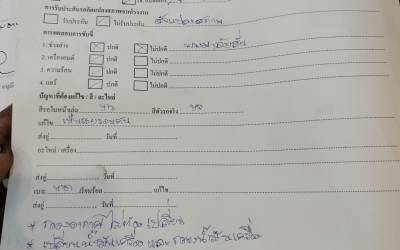 การรับประกันรถดัดแปลงสภาพจากโรงงาน
รับประกัน ไม่รับประกัน
การทดสอบการขับขี่
1. ช่วงล่าง ปกติ ไม่ปกติ
2. เครื่องยนต์ ปกติ ไม่ปกติ
3. ความร้อน ปกติ ไม่ปกติ
4. แอร์ ปกติ ไม่ปกติ
ปัญหาที่ต้องแก้ไข / สี / อะไหล่
สีรถในหน้าเล่ม ขาว สีตัวรถจริง
แก้ไข
ส่งอู่ วันที่
อะไหล่ / เครื่อง
ส่งอู่ วันที่
เบาะ เรียบร้อย แก้ไข
ส่งอู่ วันที่
* กรองอากาศ ไม่ต้อง เปลี่ยน
* เปลี่ยนน้ำมันเครื่อง และ กรองน้ำมันเครื่อง